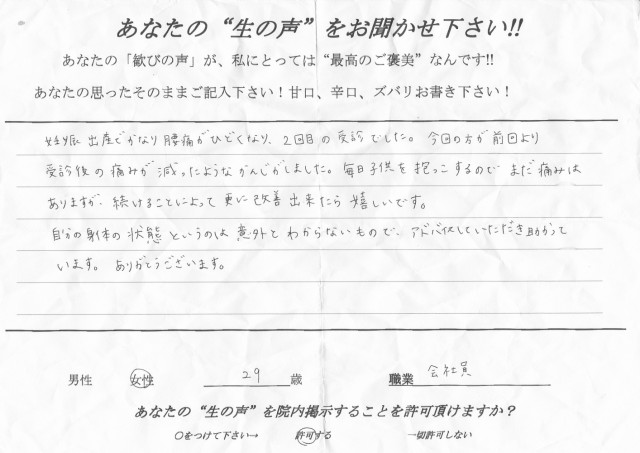 あなたの“生の声”をお聞かせ下さい!!
あなたの「歓びの声」が、私にとっては“最高のご褒美”なんです!!
あなたの思ったそのままご記入下さい！甘口、辛口、ズバリお書き下さい！
妊娠 出産でかなり腰痛がひどくなり、2回目の受診でした。今回の方が前回より
受診後の痛みが減ったようなかんじがしました。毎日子供を抱っこするので まだ痛みは
ありますが、続けることによって更に改善出来たら嬉しいです。
自分の身体の状態というのは意外とわからないもので、アドバイスしていただき助かって
います。ありがとうございます。
男性 女性 29歳 職業 会社員
あなたの“生の声”を院内掲示することを許可頂けますか？
○をつけて下さい→ 許可する 一切許可しない